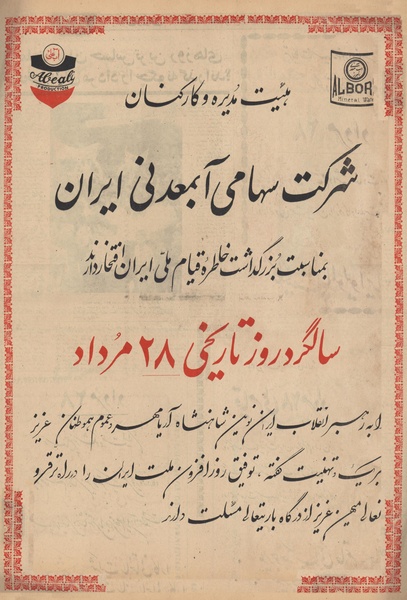 Abeały
PRODUCTION
ALBOR
Mineral Wat
هیئت مدیره و کارکنان
شرکت سهامی آبمعدنی ایران
بمناسبت بزرگداشت خاطره قیام ملی ایران افتخار دارند
سالگرد روز تاریخی ۲۸ مرداد
را به رهبر انقلاب ایران نوین شاهنشاه آریامهر و عموم هموطنان عزیز
تبریک و تهنیت گفته، توفیق روزافزون ملت ایران را در راه ترقی و
تعالی میهن عزیز از درگاه باریتعالی مسئلت دارند